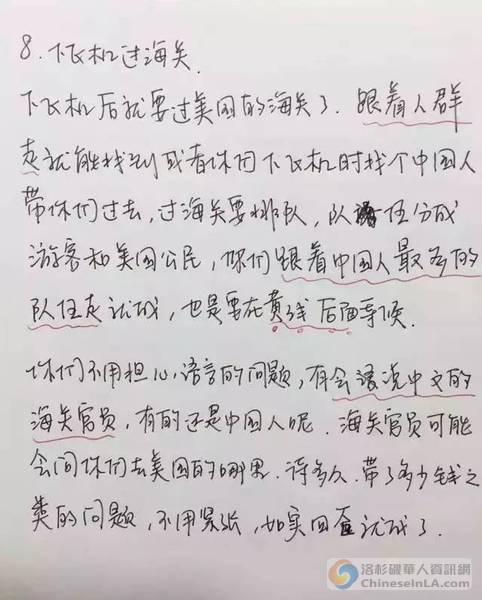 8. 下飞机过海关.
下飞机后就要过美国的海关了. 跟着人群
走就能找到或者你们下飞机时找个中国人
带你们过去, 过海关要排队, 队伍分成
游客和美国公民, 你们跟着中国人最多的
队伍走就成, 也是要在黄线后面等候.
你们不用担心语言的问题, 有会说中文的
海关官员, 有的还是中国人呢. 海关官员可能
会问你们去美国的哪里. 待多久. 带了多少钱之
类的问题, 不用紧张, 如实回答就成了.
洛杉磯華人資訊網
ChineseInLA.com